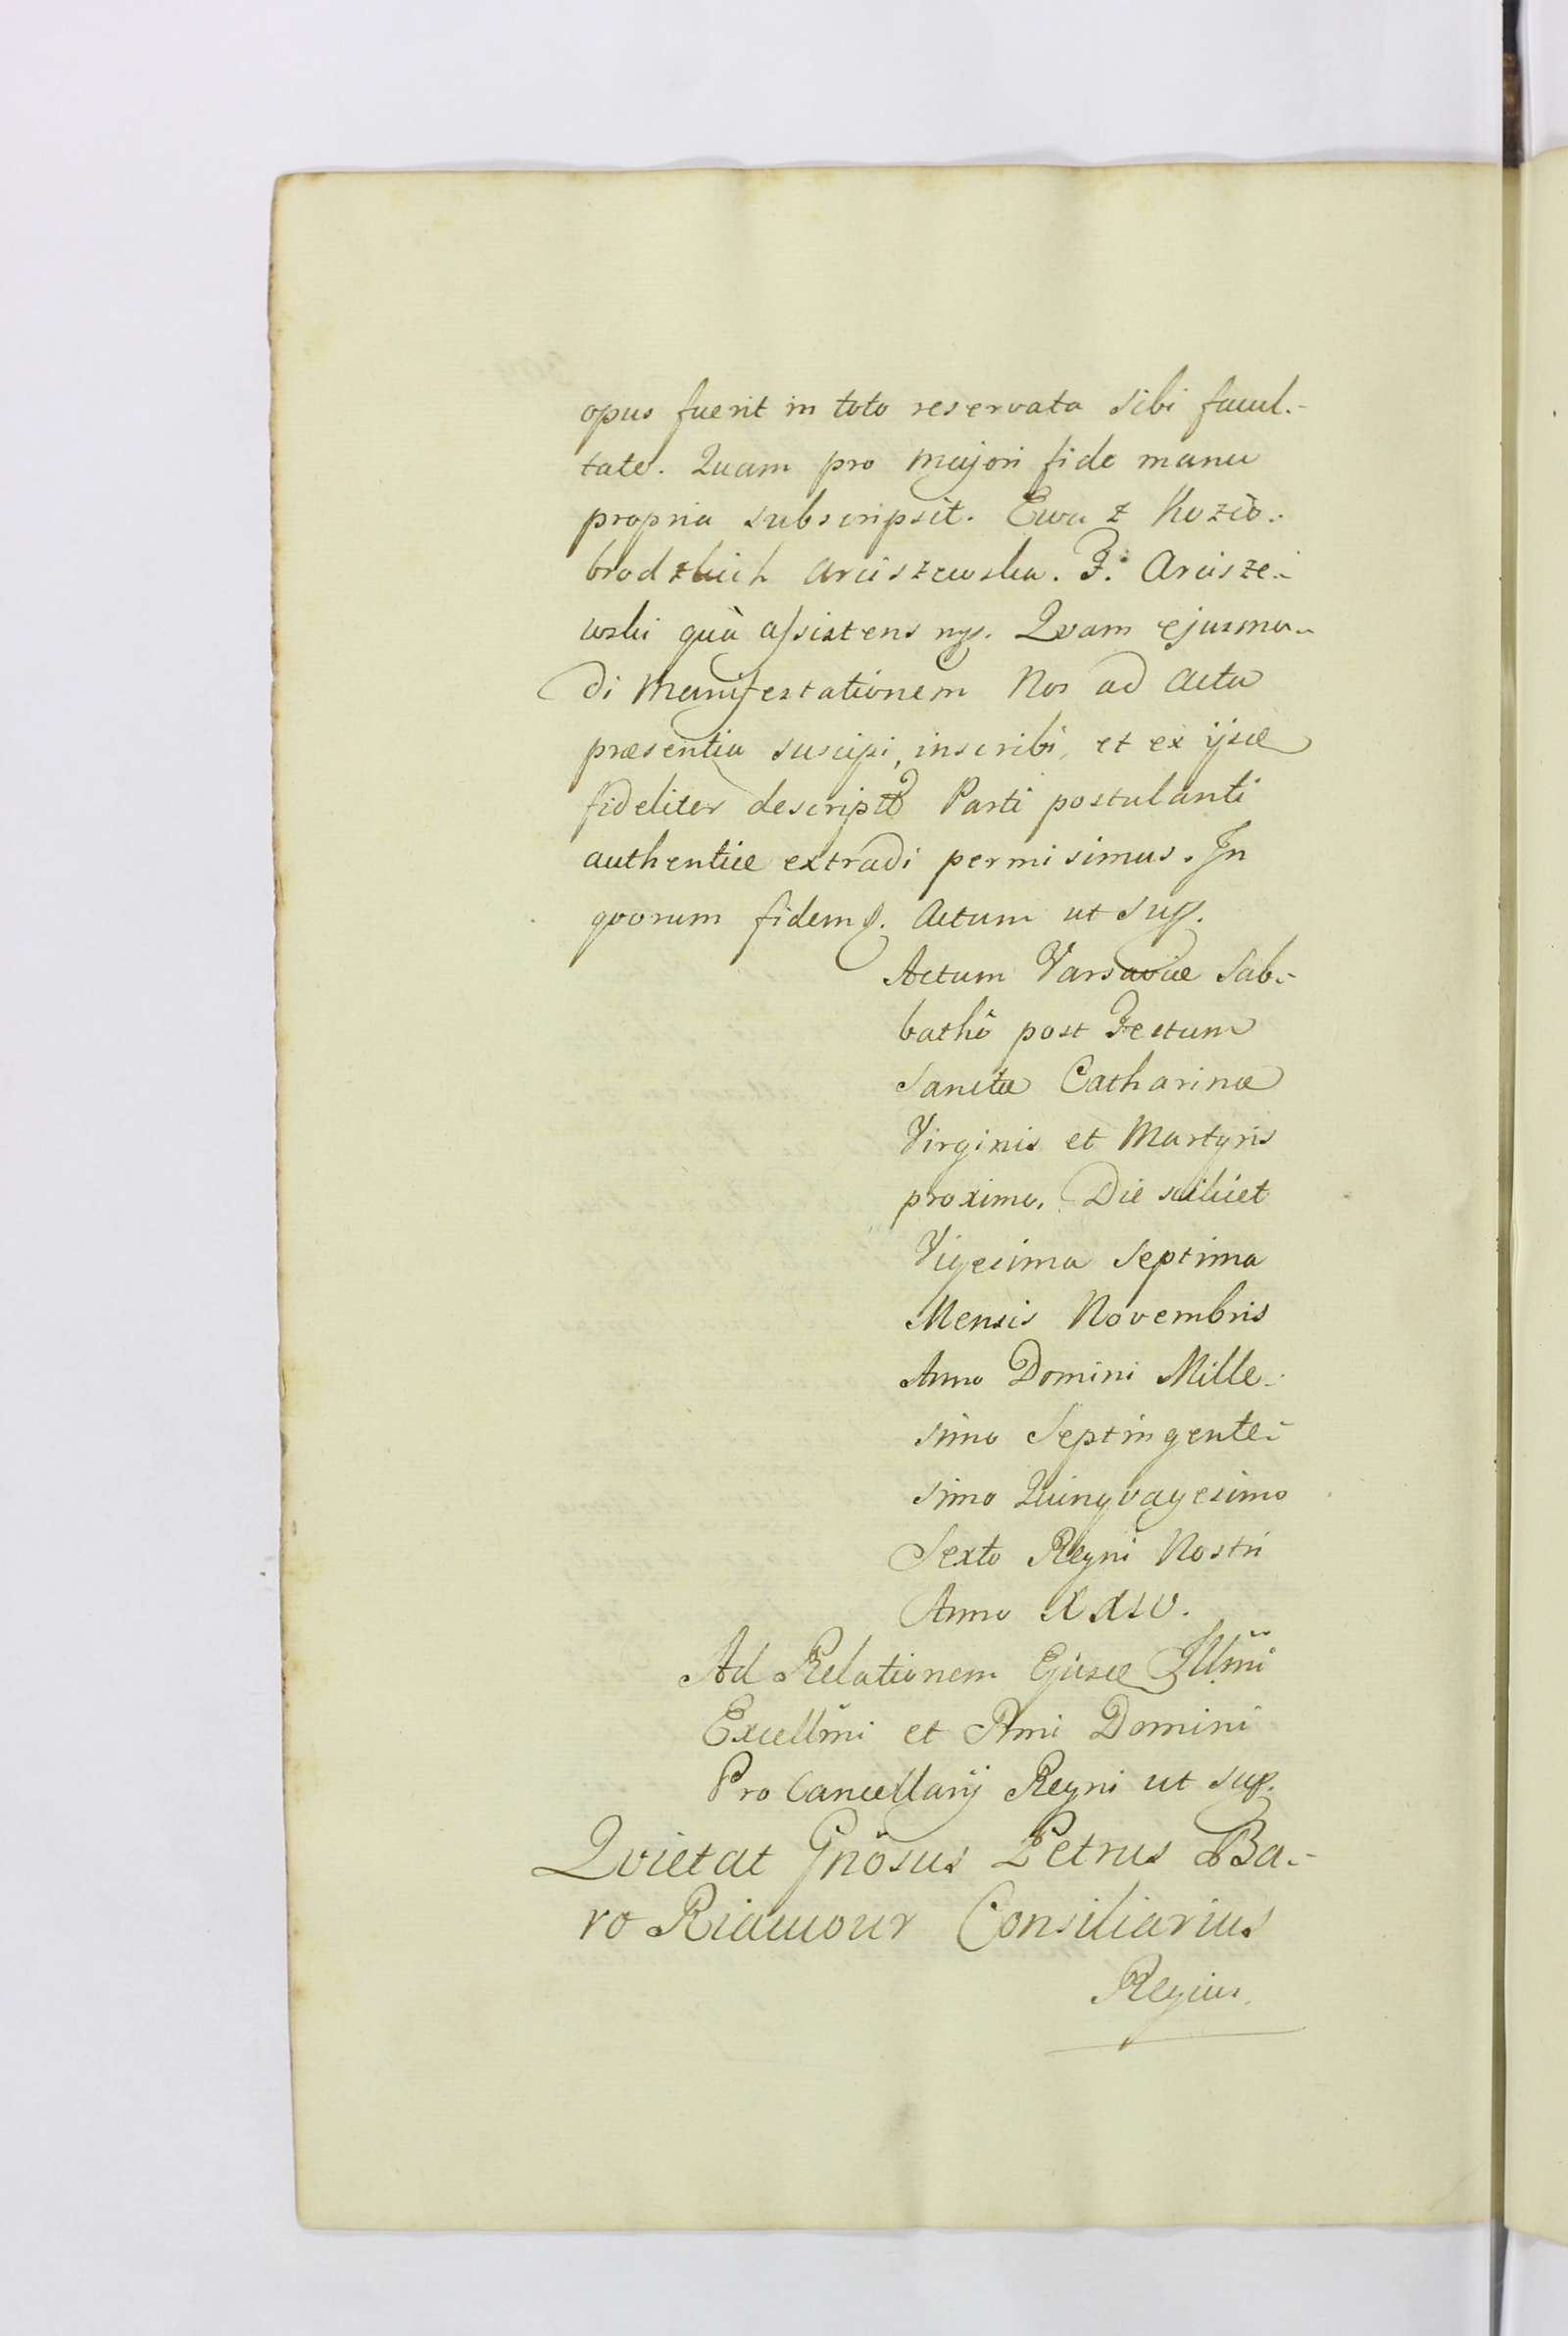 opus fuerit in toto reservata sibi facul-
tate. Quam pro majori fide manu
propria subscripsit. Ewa z Kozió-
brodzkich Arciszewska. F. Arcisze-
wski quà assistens mp. Qvam ejusmo-
di Manifestationem Nos ad Acta
præsentia suscipi, inscribi, et ex ijsce
fideliter descriptã Parti postulanti
authentice extradi permisimus. In
qvorum fidem p. Actum ut sup.
Actum Varsaviæ Sab-
bathô post Festum
Sanctæ Catharinæ
Virginis et Martyris
proximo. Die scilicet
Vigesima Septima
Mensis Novembris
Anno Domini Mille-
simo Septingente-
simo Quinqvagesimo
Sexto Regni Nostri
Anno XXIV.
Ad Relationem Ejusce Illmi
Excellmi et Rmi Domini
Pro Cancellarij Regni ut sup.
Qvietat Gnosus Petrus Ba-
ro Riaucour Consiliarius
Regius.